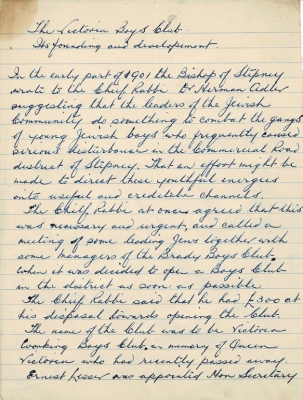 The Victoria Boys Club.
Its founding and developement
In the early part of 1901 the Bishop of Stepney
wrote to the Chief Rabbi Dr Herman Adler
suggesting that the leaders of the Jewish
Community do something to combat the gangs
of young Jewish boys who frequently caused
serious disturbance in the Commercial Road
district of Stepney. That an effort might be
made to direct these youthful energies
into useful and creditable channels.
The Chief Rabbi at once agreed that this
was necessary and urgent, and called a
meeting of some leading Jews together with
some managers of the Brady Boys Club.
when it was decided to open a Boys Club
in the district as soon as possible
The Chief Rabbi said that he had £300 at
his disposal towards opening the Club.
The name of the Club was to be Victoria
Working Boys Club in memory of Queen
Victoria who had recently passed away.
Ernest Lesser was appointed Hon Secretary